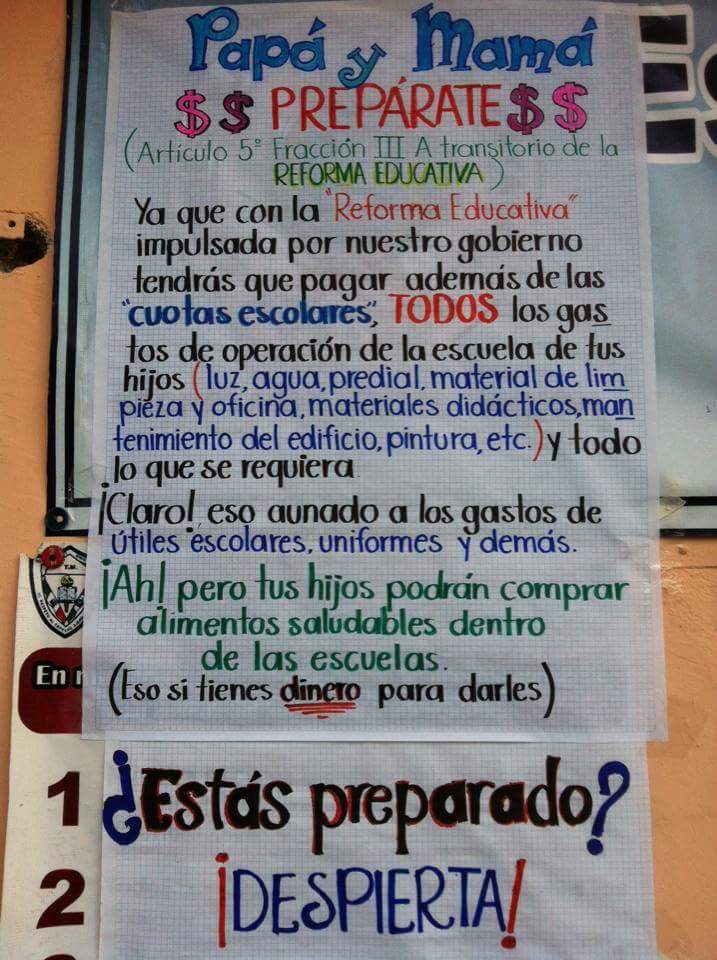 Papá y Mamá
$$ PREPÁRATE $$
(Artículo 5º Fracción III A transitorio de la
REFORMA EDUCATIVA)
Ya que con la "Reforma Educativa"
impulsada por nuestro gobierno
tendrás que pagar además de las
"cuotas escolares", TODOS los gas
tos de operación de la escuela de tus
hijos (luz, agua, predial, material de lim
pieza y oficina, materiales didácticos, man
tenimiento del edificio, pintura, etc.) y todo
lo que se requiera.
¡Claro!, eso aunado a los gastos de
útiles escolares, uniformes y demás.
¡Ah! pero tus hijos podrán comprar
alimentos saludables dentro
de las escuelas.
(Eso si tienes dinero para darles)
¿Estás preparado?
¡DESPIERTA!
T.M.
En
1
2